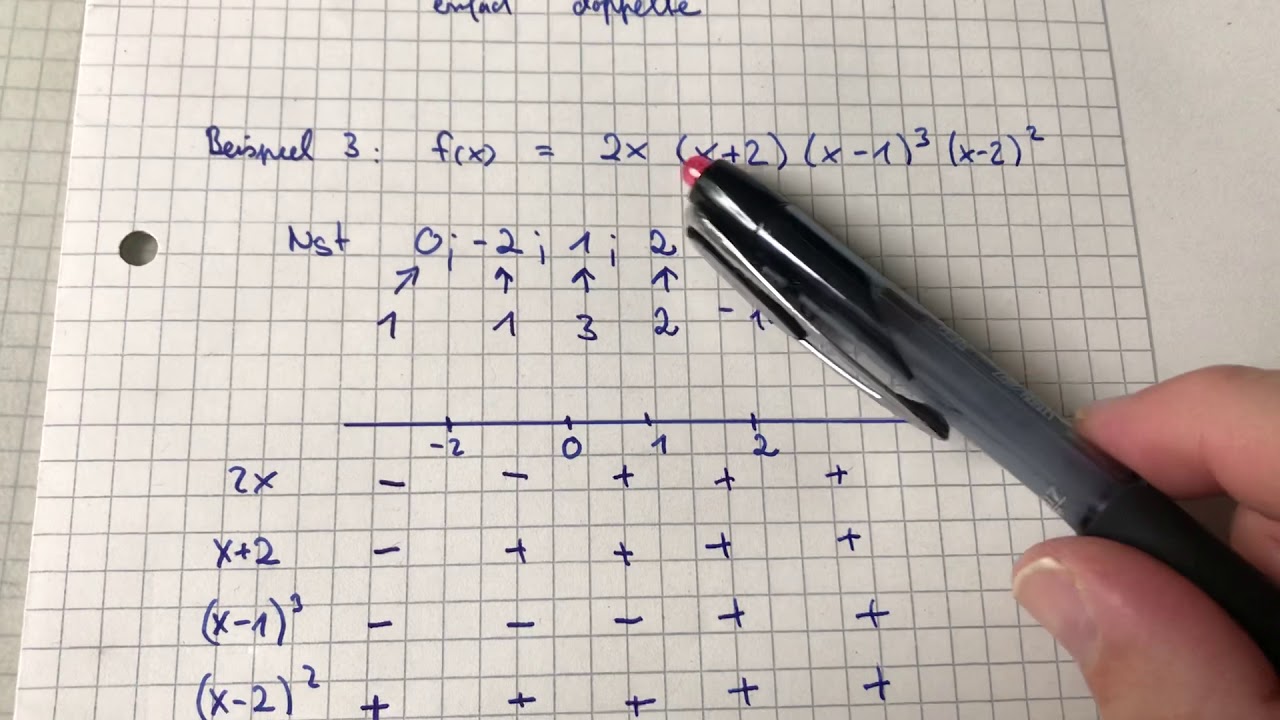 einfach doppelte
Beispiel 3: f(x) = 2x (x+2) (x-1)³ (x-2)²
Nst 0; -2; 1; 2
↗ ↑ ↑ ↑
1 1 3 2 -1
-2 0 1 2
2x - - + + +
x+2 - + + + +
(x-1)³ - - - + +
(x-2)² + + + + +